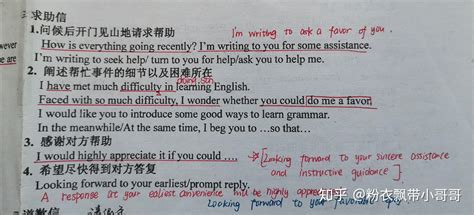 求助信
1.问候后开门见山地请求帮助 I'm writing to ask a favor of you.
How is everything going recently? I'm writing to you for some assistance.
I'm writing to seek help/ turn to you for help/ask you to help me.
2. 阐述帮忙事件的细节以及困难所在
doing sth
I have met much difficulty in learning English.
Faced with so much difficulty, I wonder whether you could do me a favor.
I would like you to introduce some good ways to learn grammar.
In the meanwhile/At the same time, I beg you to …so that…
3. 感谢对方帮助
I would highly appreciate it if you could …. [Looking forward to your sincere assistance
and instructive guidance].
4. 希望尽快得到对方答复
Looking forward to your earliest/prompt reply.
A response at your earliest convenience will be highly appreciated
Looking forward to your favorable
知乎 @粉衣飘带小哥哥